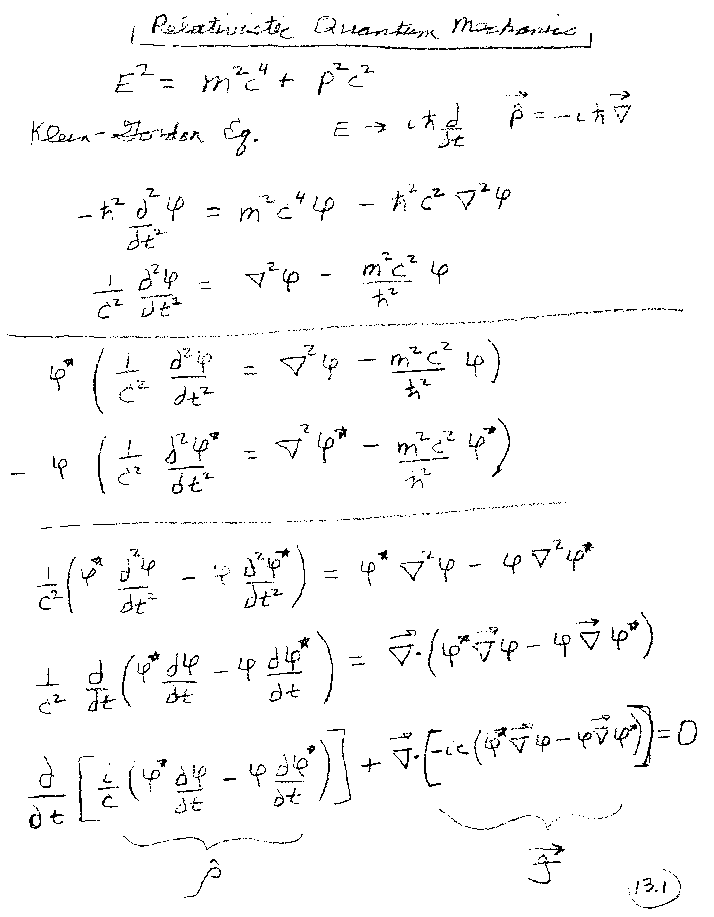 Relativistic Quantum Mechanics
E² = m²c⁴ + p²c²
Klein-Gordon Eq. E → iħ ∂/∂t p⃗ = -iħ∇⃗
-ħ² ∂²φ/∂t² = m²c⁴φ - ħ²c²∇²φ
1/c² ∂²φ/∂t² = ∇²φ - m²c²/ħ² φ
φ* ( 1/c² ∂²φ/∂t² = ∇²φ - m²c²/ħ² φ )
- φ ( 1/c² ∂²φ*/∂t² = ∇²φ* - m²c²/ħ² φ* )
1/c² ( φ* ∂²φ/∂t² - φ ∂²φ*/∂t² ) = φ*∇²φ - φ∇²φ*
1/c² ∂/∂t ( φ* ∂φ/∂t - φ ∂φ*/∂t ) = ∇⃗·( φ*∇⃗φ - φ∇⃗φ* )
∂/∂t [ i/c ( φ* ∂φ/∂t - φ ∂φ*/∂t ) ] + ∇⃗·[ -ic ( φ*∇⃗φ - φ∇⃗φ* ) ] = 0
13.1